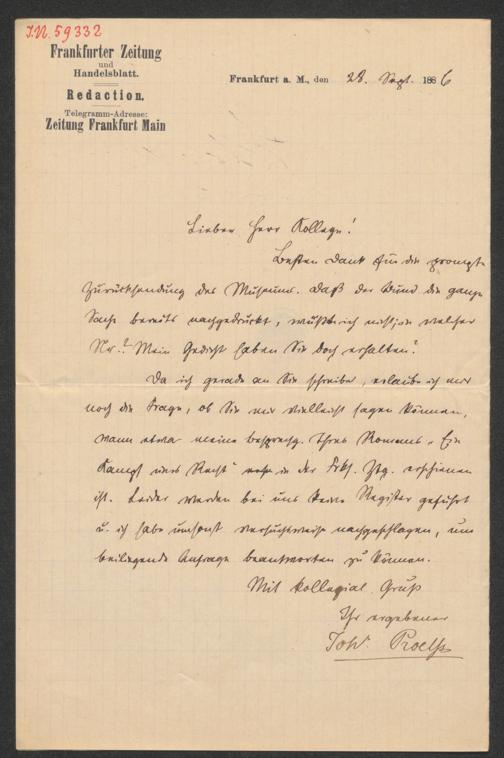 I.N. 59332
Frankfurter Zeitung
und
Handelsblatt.
Redaction.
Telegramm-Adresse:
Zeitung Frankfurt Main
Frankfurt a. M., den 28. Sept. 1886
Lieber Herr Kollege!
Besten Dank für die prompte
Zurücksendung des Museums. Daß der Bund die ganze
Sache bereits nachgedruckt, wußte ich nicht; in welcher
Nr.? Mein Gedicht haben Sie doch erhalten?
Da ich gerade an Sie schreibe, erlaube ich mir
noch die Frage, ob Sie mir vielleicht sagen können,
wann etwa meine Besprechg. Ihres Romans „Ein
Kampf ums Recht" in der Frkf. Ztg. erschienen
ist. Leider werden bei uns keine Register geführt
u. ich habe umsonst versuchsweise nachgeschlagen, um
beiliegende Anfrage beantworten zu können.
Mit kollegial. Gruß
Ihr ergebener
Joh. Proelß